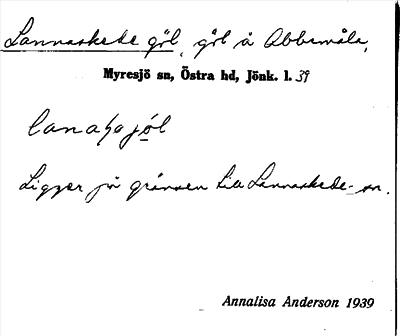 Lannaskede göl, göl å Abbemåla,
Myresjö sn, Östra hd, Jönk. l. 39
Ligger på gränsen till Lannaskede- sn.
Annalisa Anderson 1939